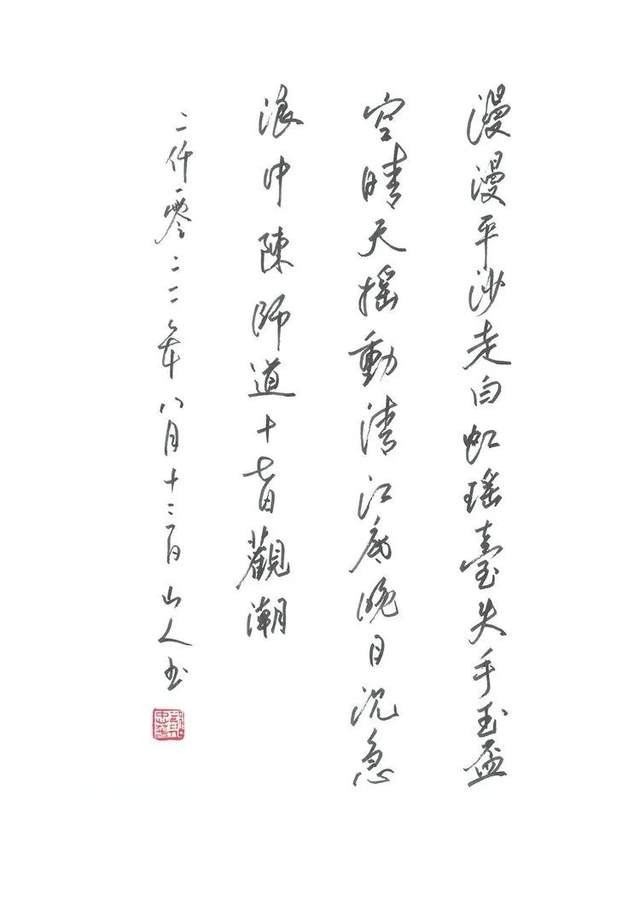 漫漫平沙走白虹瑤臺失手玉盃
空晴天搖動清江底晚日沉急
浪中陳師道十七日觀潮
二仟零二二年八月十二日山人书